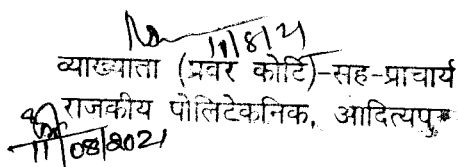 11/8/21
व्याख्याता (प्रवर कोटि)-सह-प्राचार्य
राजकीय पोलिटेकनिक, आदित्यपुर
11/08/2021